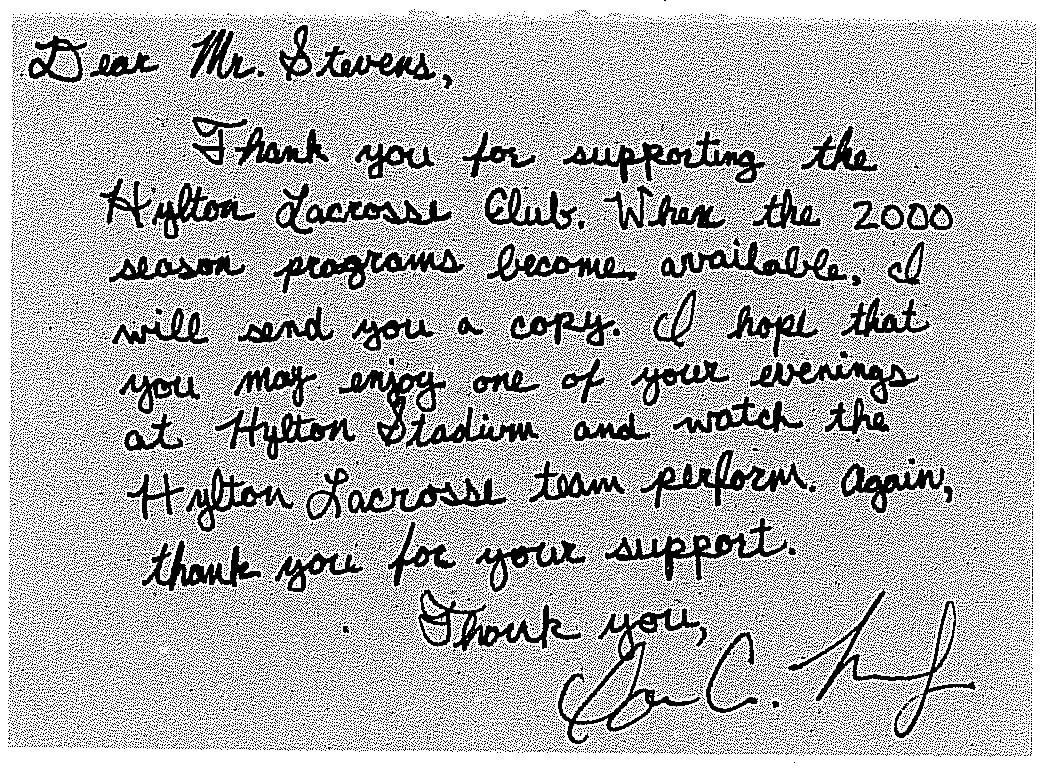 Dear Mr. Stevens,
Thank you for supporting the
Hylton Lacrosse Club. When the 2000
season programs become available, I
will send you a copy. I hope that
you may enjoy one of your evenings
at Hylton Stadium and watch the
Hylton Lacrosse team perform. Again,
thank you for your support.
Thank you,
C.